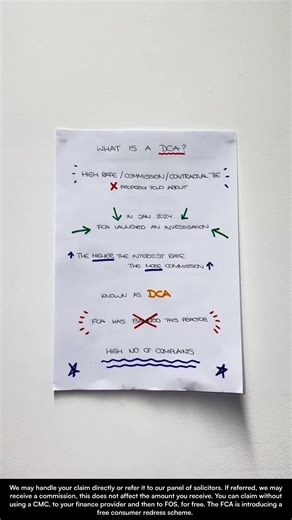 WHAT IS A DCA?
HIGH RATE / COMMISSION / CONTRACTUAL TIE
X PROPERLY TOLD ABOUT
IN JAN 2024
FCA LAUNCHED AN INVESTIGATION
THE HIGHER THE INTEREST RATE
THE MORE COMMISSION
KNOWN AS DCA
FCA HAS THIS PRACTICE
HIGH NO. OF COMPLAINTS
We may handle your claim directly or refer it to our panel of solicitors. If referred, we may
receive a commission, this does not affect the amount you receive. You can claim without
using a CMC, to your finance provider and then to FOS, for free. The FCA is introducing a
free consumer redress scheme.